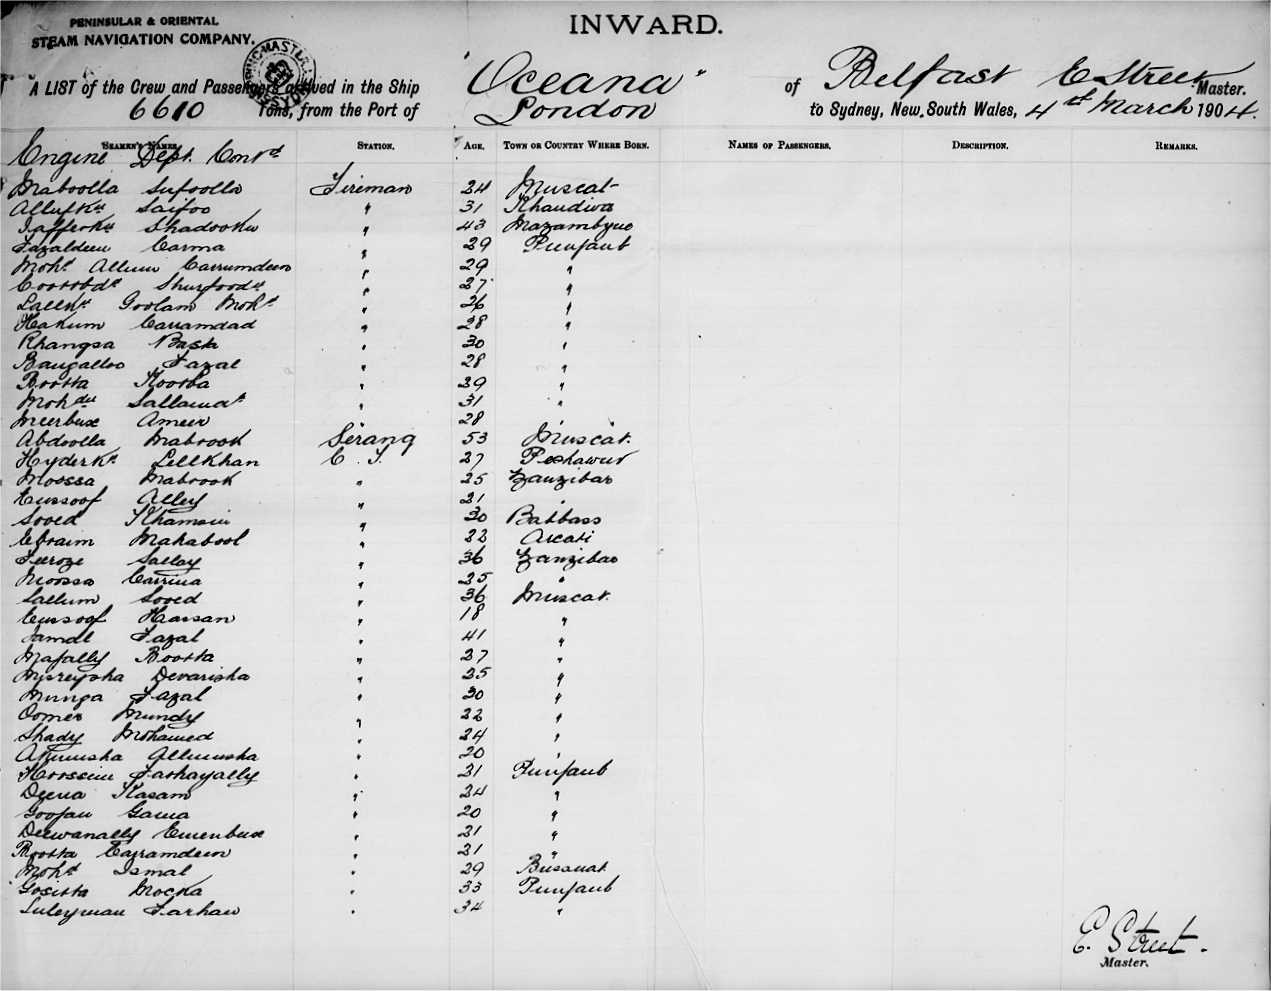 INWARD.
PENINSULAR & ORIENTAL
STEAM NAVIGATION COMPANY.
A LIST of the Crew and Passengers arrived in the Ship "Oceana" of Belfast E Street Master.
6610 Tons, from the Port of London to Sydney, New South Wales, 4th March 1904.
SEAMEN'S NAMES. STATION. AGE. TOWN OR COUNTRY WHERE BORN. NAMES OF PASSENGERS. DESCRIPTION. REMARKS.
Engine Dept. Contd
Maboolla Sufoolla Fireman 24 Muscat
Saifoo " 31
" 43
Fazaldeen Carma " 29 Punjaub
Mohd Allum Carrumdeen " 29 "
" 27 "
Goolam Mohd " 26 "
Hakum Carramdad " 28 "
Khangsa Basa " 30 "
Fazal " 28 "
Boosta Koosba " 29 "
" 31 "
Meerbux Ameer " 28 "
Abdoolla Mabrook Serang 53 Muscat.
Hyderkn Lellkhan C. T. 27 Peshawur
Moossa Mabrook " 25 Zanzibar
Eussoof Alley " 21 "
Sooed Khamsin " 30
Ebraim Makabool " 22
Feroze Salley " 36 Zanzibar
Moossa Carrina " 25 "
Sallum Sooed " 36 Muscat.
Eussoof Hassan " 18 "
Jamal Fazal " 41 "
Mafally Boosta " 27 "
Devarisha " 25 "
Munga Fazal " 30 "
Oomer Mundy " 22 "
Shady Mohamed " 24 "
Allumsha " 20 "
Hoossein " 21 Punjaub
Deena Kasam " 24 "
Goofau Gama " 20 "
Deewanally Emenbux " 21 "
Boosta Carramdeen " 21 "
Mohd Ismal " 29
Gositta Mocka " 33 Punjaub
Suleyman Farhan " 34 "
E. Street.
Master.